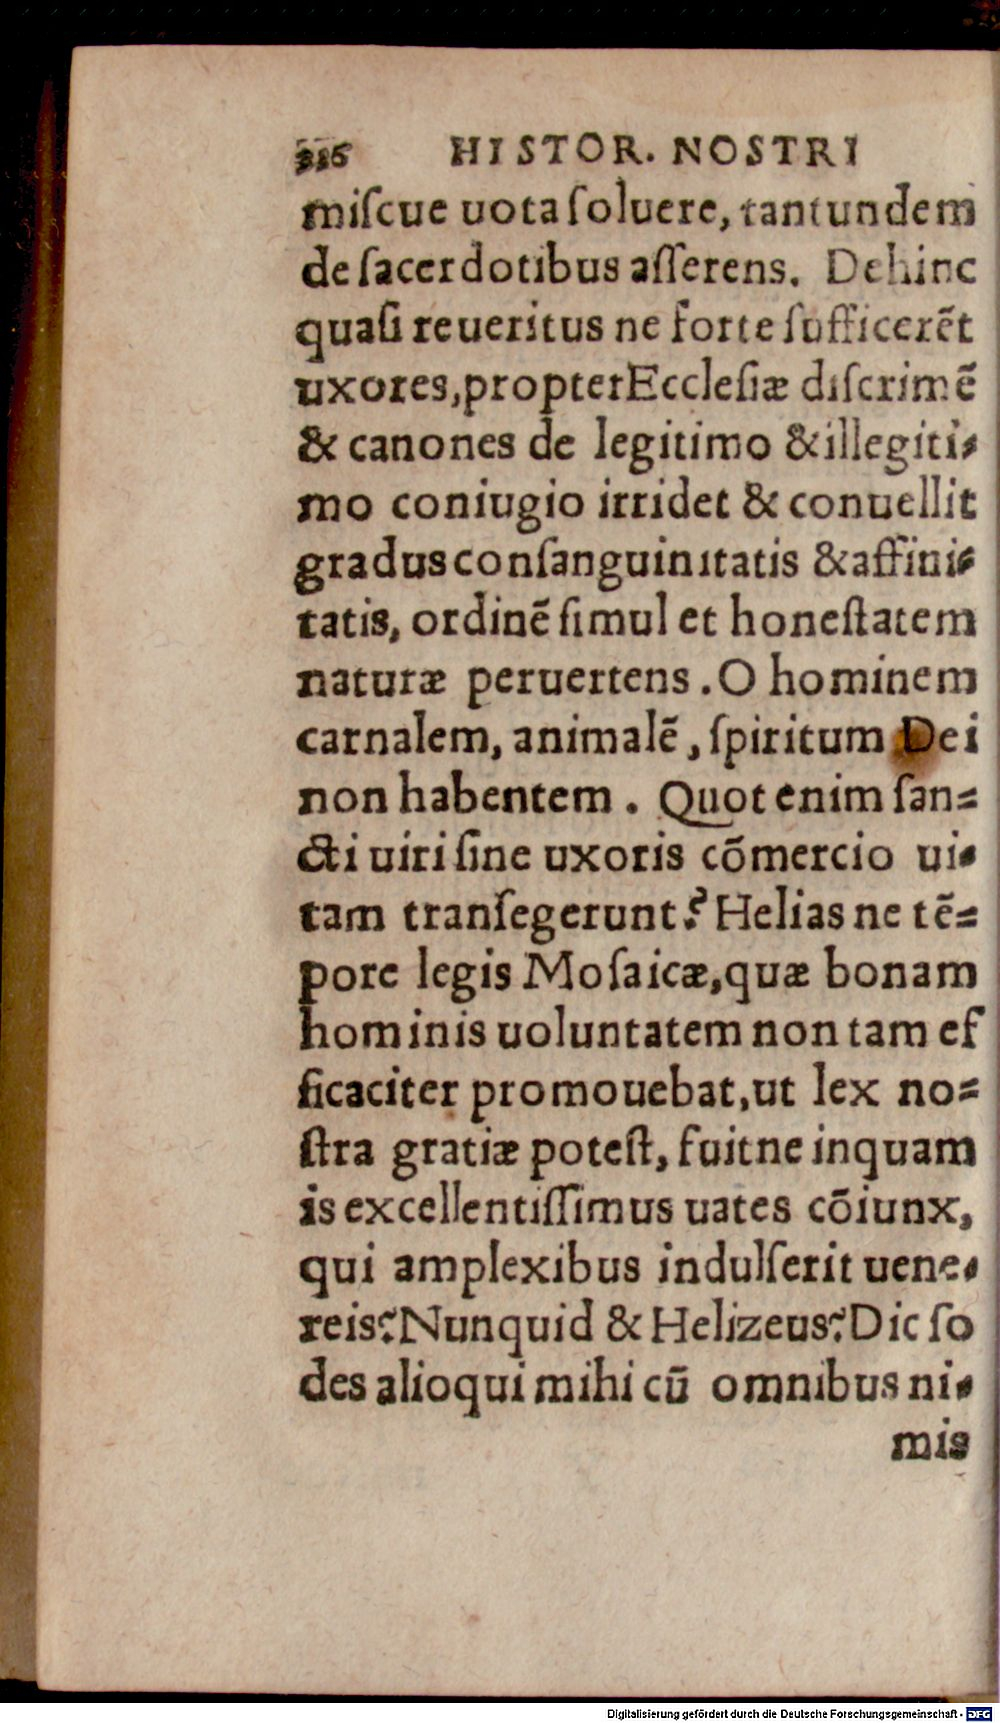 HISTOR. NOSTRI
miſcue uota ſoluere, tantundem
de ſacerdotibus aſſerens. Dehinc
quaſi reueritus ne forte ſufficerēt
uxores, propter Eccleſiæ diſcrimē
& canones de legitimo & illegiti-
mo coniugio irridet & conuellit
gradus conſanguinitatis & affini-
tatis, ordinē ſimul et honeſtatem
naturæ peruertens. O hominem
carnalem, animalē, ſpiritum Dei
non habentem. Quot enim ſan=
cti uiri ſine uxoris cōmercio ui-
tam tranſegerunt? Helias ne tē=
pore legis Moſaicæ, quæ bonam
hominis uoluntatem non tam ef
ficaciter promouebat, ut lex no=
ſtra gratiæ poteſt, fuitne inquam
is excellentiſſimus uates cōiunx,
qui amplexibus indulſerit uene-
reis? Nunquid & Helizeus? Dic ſo
des alioqui mihi cū omnibus ni-
mis
Digitalisierung gefördert durch die Deutsche Forschungsgemeinschaft - DFG